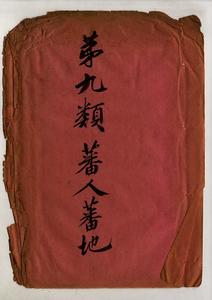 第九類 蕃人蕃地